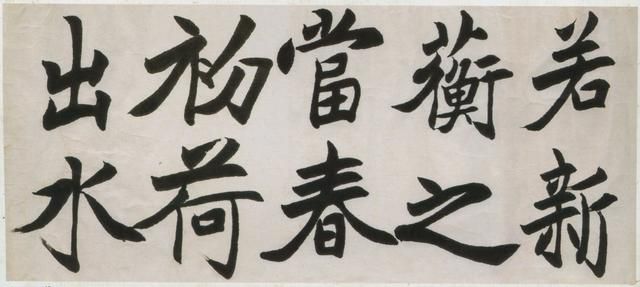 若新
蘅之
當春
初荷
出水